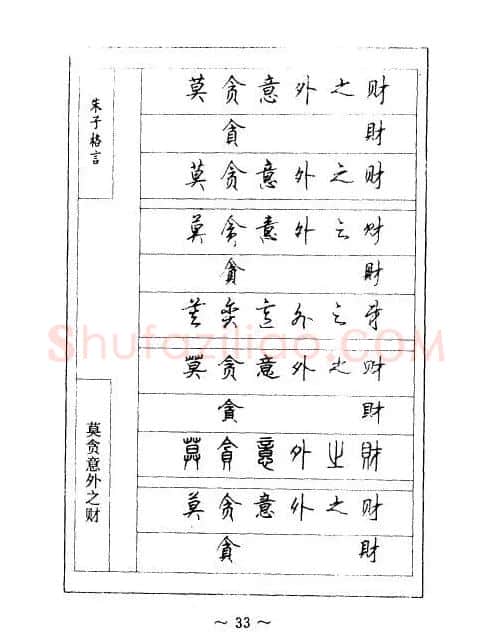 朱子格言
莫贪意外之财
貪 財
莫贪意外之财
莫贪意外之财
貪 財
莫贪意外之财
莫贪意外之财
貪 財
莫貪意外之財
莫贪意外之财
貪 財
莫贪意外之财
Shufaziliao.COM
~ 33 ~